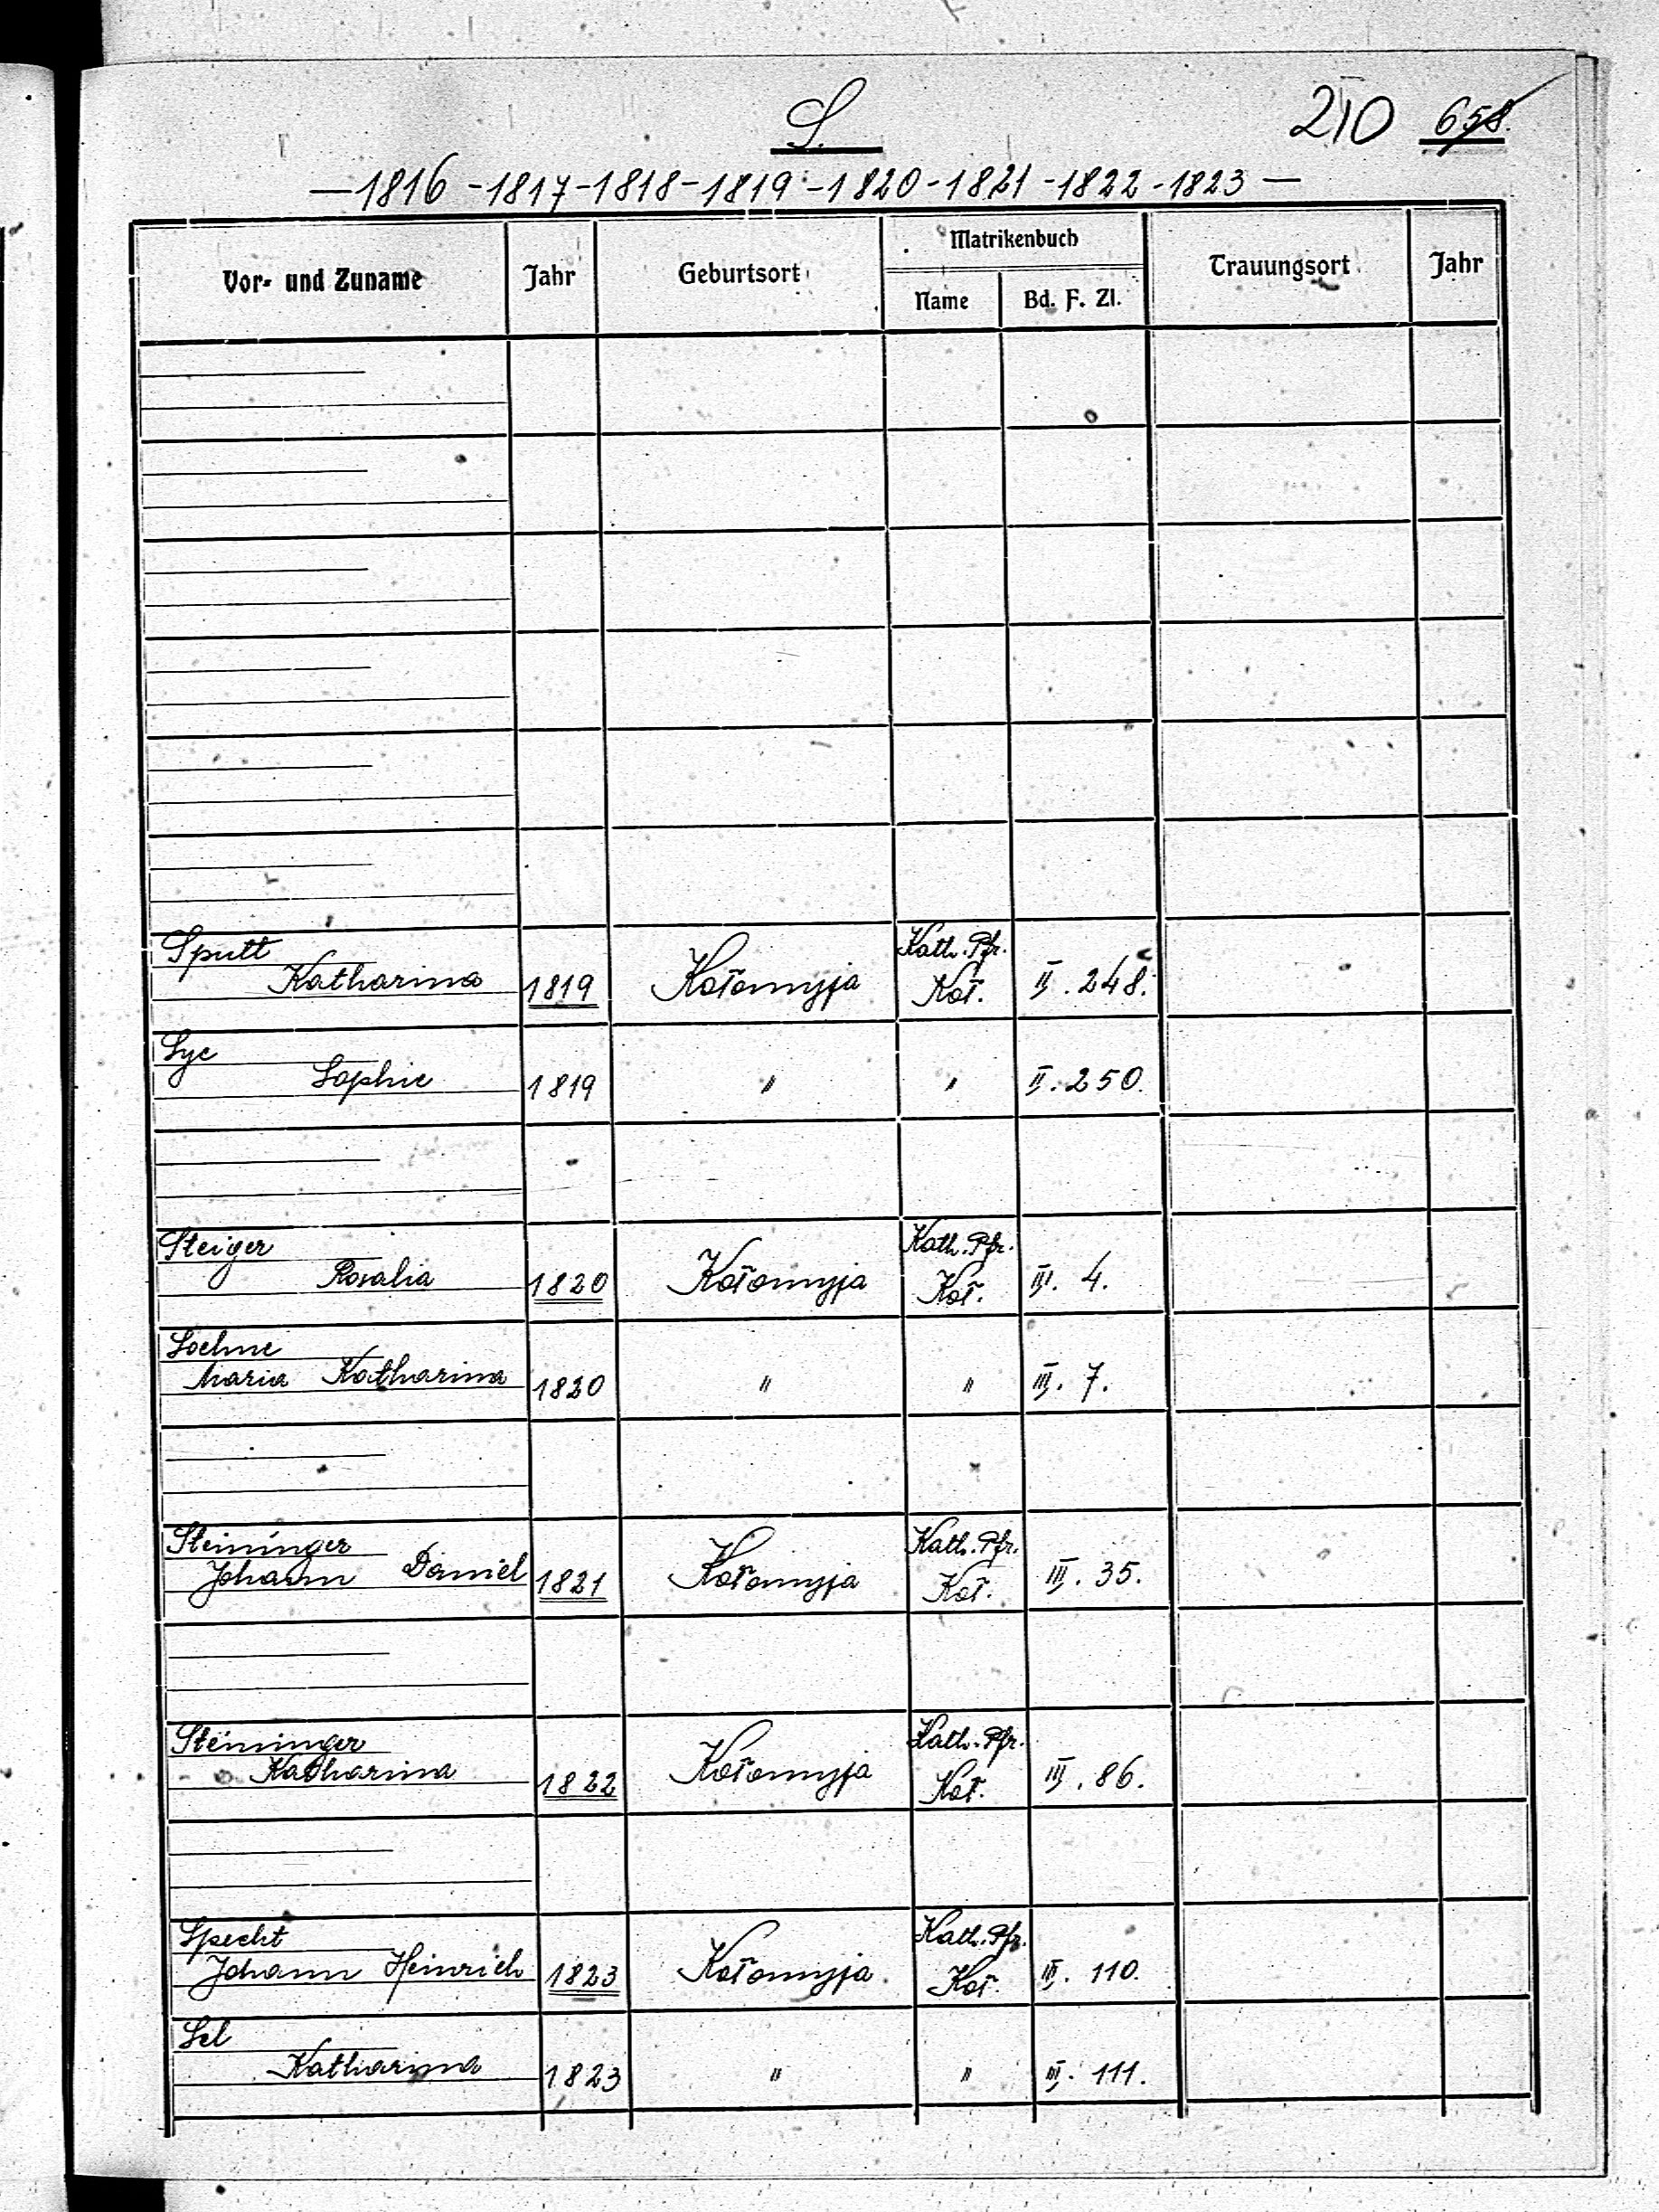 S.
210 658.
— 1816 - 1817 - 1818 - 1819 - 1820 - 1821 - 1822 - 1823 —
Vor- und Zuname Jahr Geburtsort Matrikenbuch Trauungsort Jahr
Name Bd. F. Zl.
Sputt Kath. Pfr.
Katharina 1819 Kołomyja Koł. II. 248.
Syc
Sophie 1819 " " II. 250.
Steiger Kath. Pfr.
Rosalia 1820 Kołomyja Koł. III. 4.
Soehne
Maria Katharina 1820 " " III. 7.
Steininger Kath. Pfr.
Johann Daniel 1821 Kołomyja Koł. III. 35.
Steininger Kath. Pfr.
Katharina 1822 Kołomyja Koł. III. 86.
Specht Kath. Pfr.
Johann Heinrich 1823 Kołomyja. Koł. III. 110.
Sel
Katharina 1823 " " III. 111.